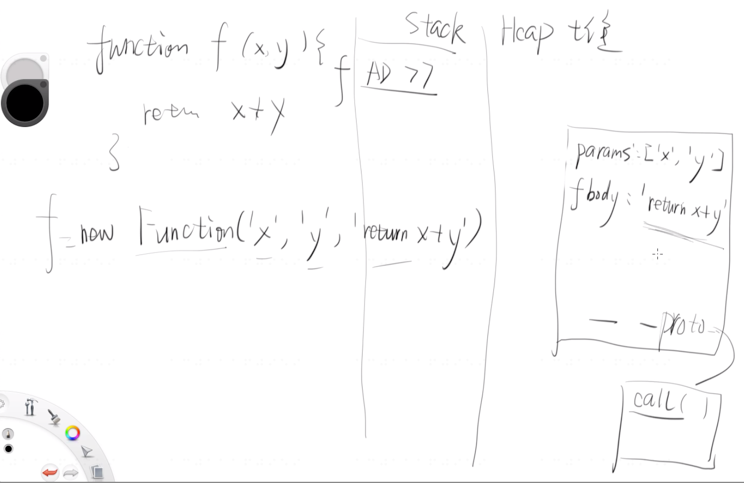 function f (x,y) {
return x+y
}
f = new Function('x', 'y', 'return x+y')
Stack
f AD 77
Heap
params: ['x', 'y']
fbody: 'return x+y'
__proto__
call()